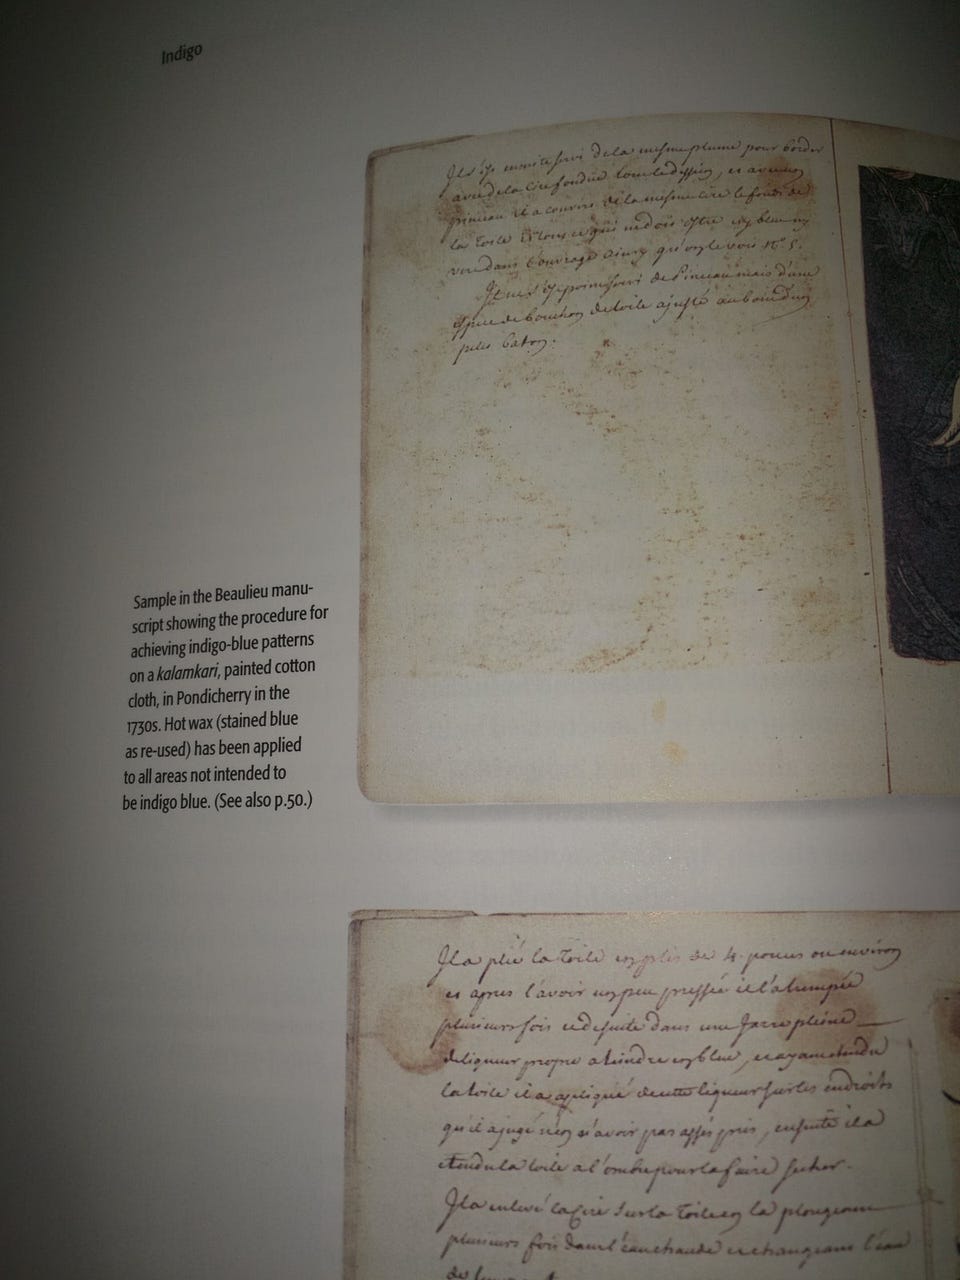 Indigo
Il s'est ensuite servi de la mesme plume pour border
avec de la cire fondue tous le dessein, et avec un
pinceau il a couvert de la mesme cire le fond de
la toile et tous ce qui ne dois estre ny bleu ny
verd dans l'ouvrage ainsy qu'on le voit N° 5.
Il ne s'est point servi de Pinceau mais d'une
espece de bouchon de toile ajusté au bout d'un
petit baton.
Sample in the Beaulieu manu-
script showing the procedure for
achieving indigo-blue patterns
on a kalamkari, painted cotton
cloth, in Pondicherry in the
1730s. Hot wax (stained blue
as re-used) has been applied
to all areas not intended to
be indigo blue. (See also p.50.)
Il a plié la toile en plis de 4 pouces ou environ
et apres l'avoir un peu pressée il l'a trempée
plusieurs fois de suite dans une Jarre pleine
de liqueur propre a teindre en bleu, et ayant etendu
la toile il a apliqué de cette liqueur sur les endroits
qu'il a jugé n'en n'avoir pas assés pris, ensuite il a
etendu la toile a l'ombre pour la faire secher.
Il a enlevé la Cire sur la Toile en la plongeant
plusieurs fois dans l'eau chaude et changeant l'eau